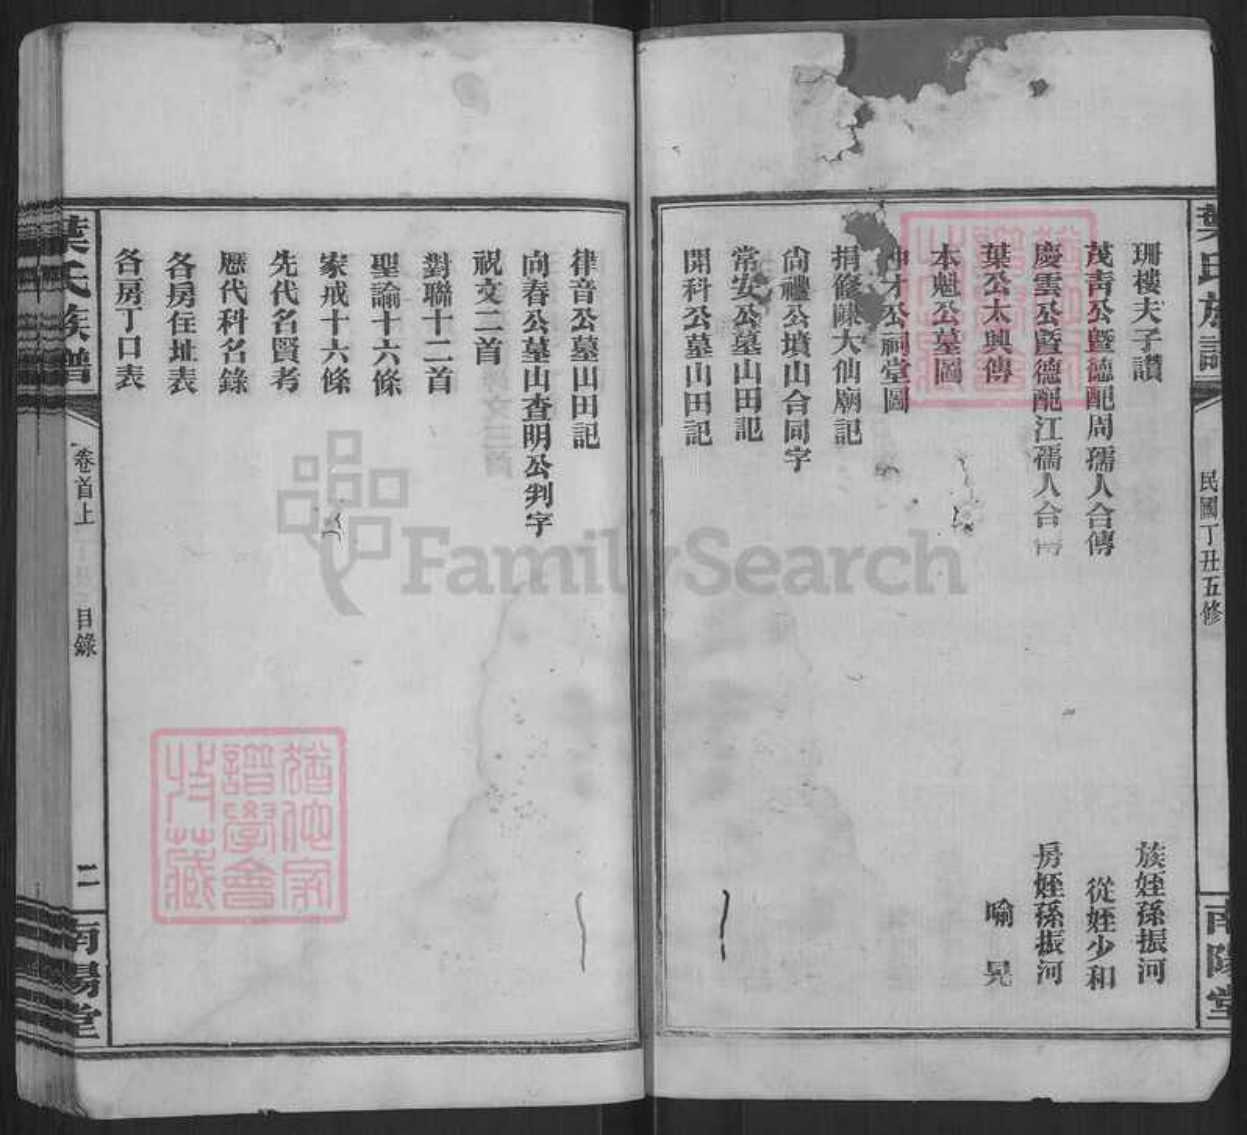 葉氏族譜
民國丁丑五修
南陽堂
珊樓夫子讚 族姪孫振河
茂青公暨德配周孺人合傳 從姪少和
慶雲公暨德配江孺人合傳 房姪孫振河
葉公太興傳 喻晃
本魁公墓圖
公祠堂圖
捐修陳大仙廟記
尙禮公墳山合同字
常安公墓山田記
開科公墓山田記
律音公墓山田記
向春公墓山查明公判字
祝文二首
對聯十二首
聖諭十六條
家戒十六條
先代名賢考
歷代科名錄
各房住址表
各房丁口表
葉氏族譜
卷首上 目錄 二
南陽堂
譜學會
FamilySearch